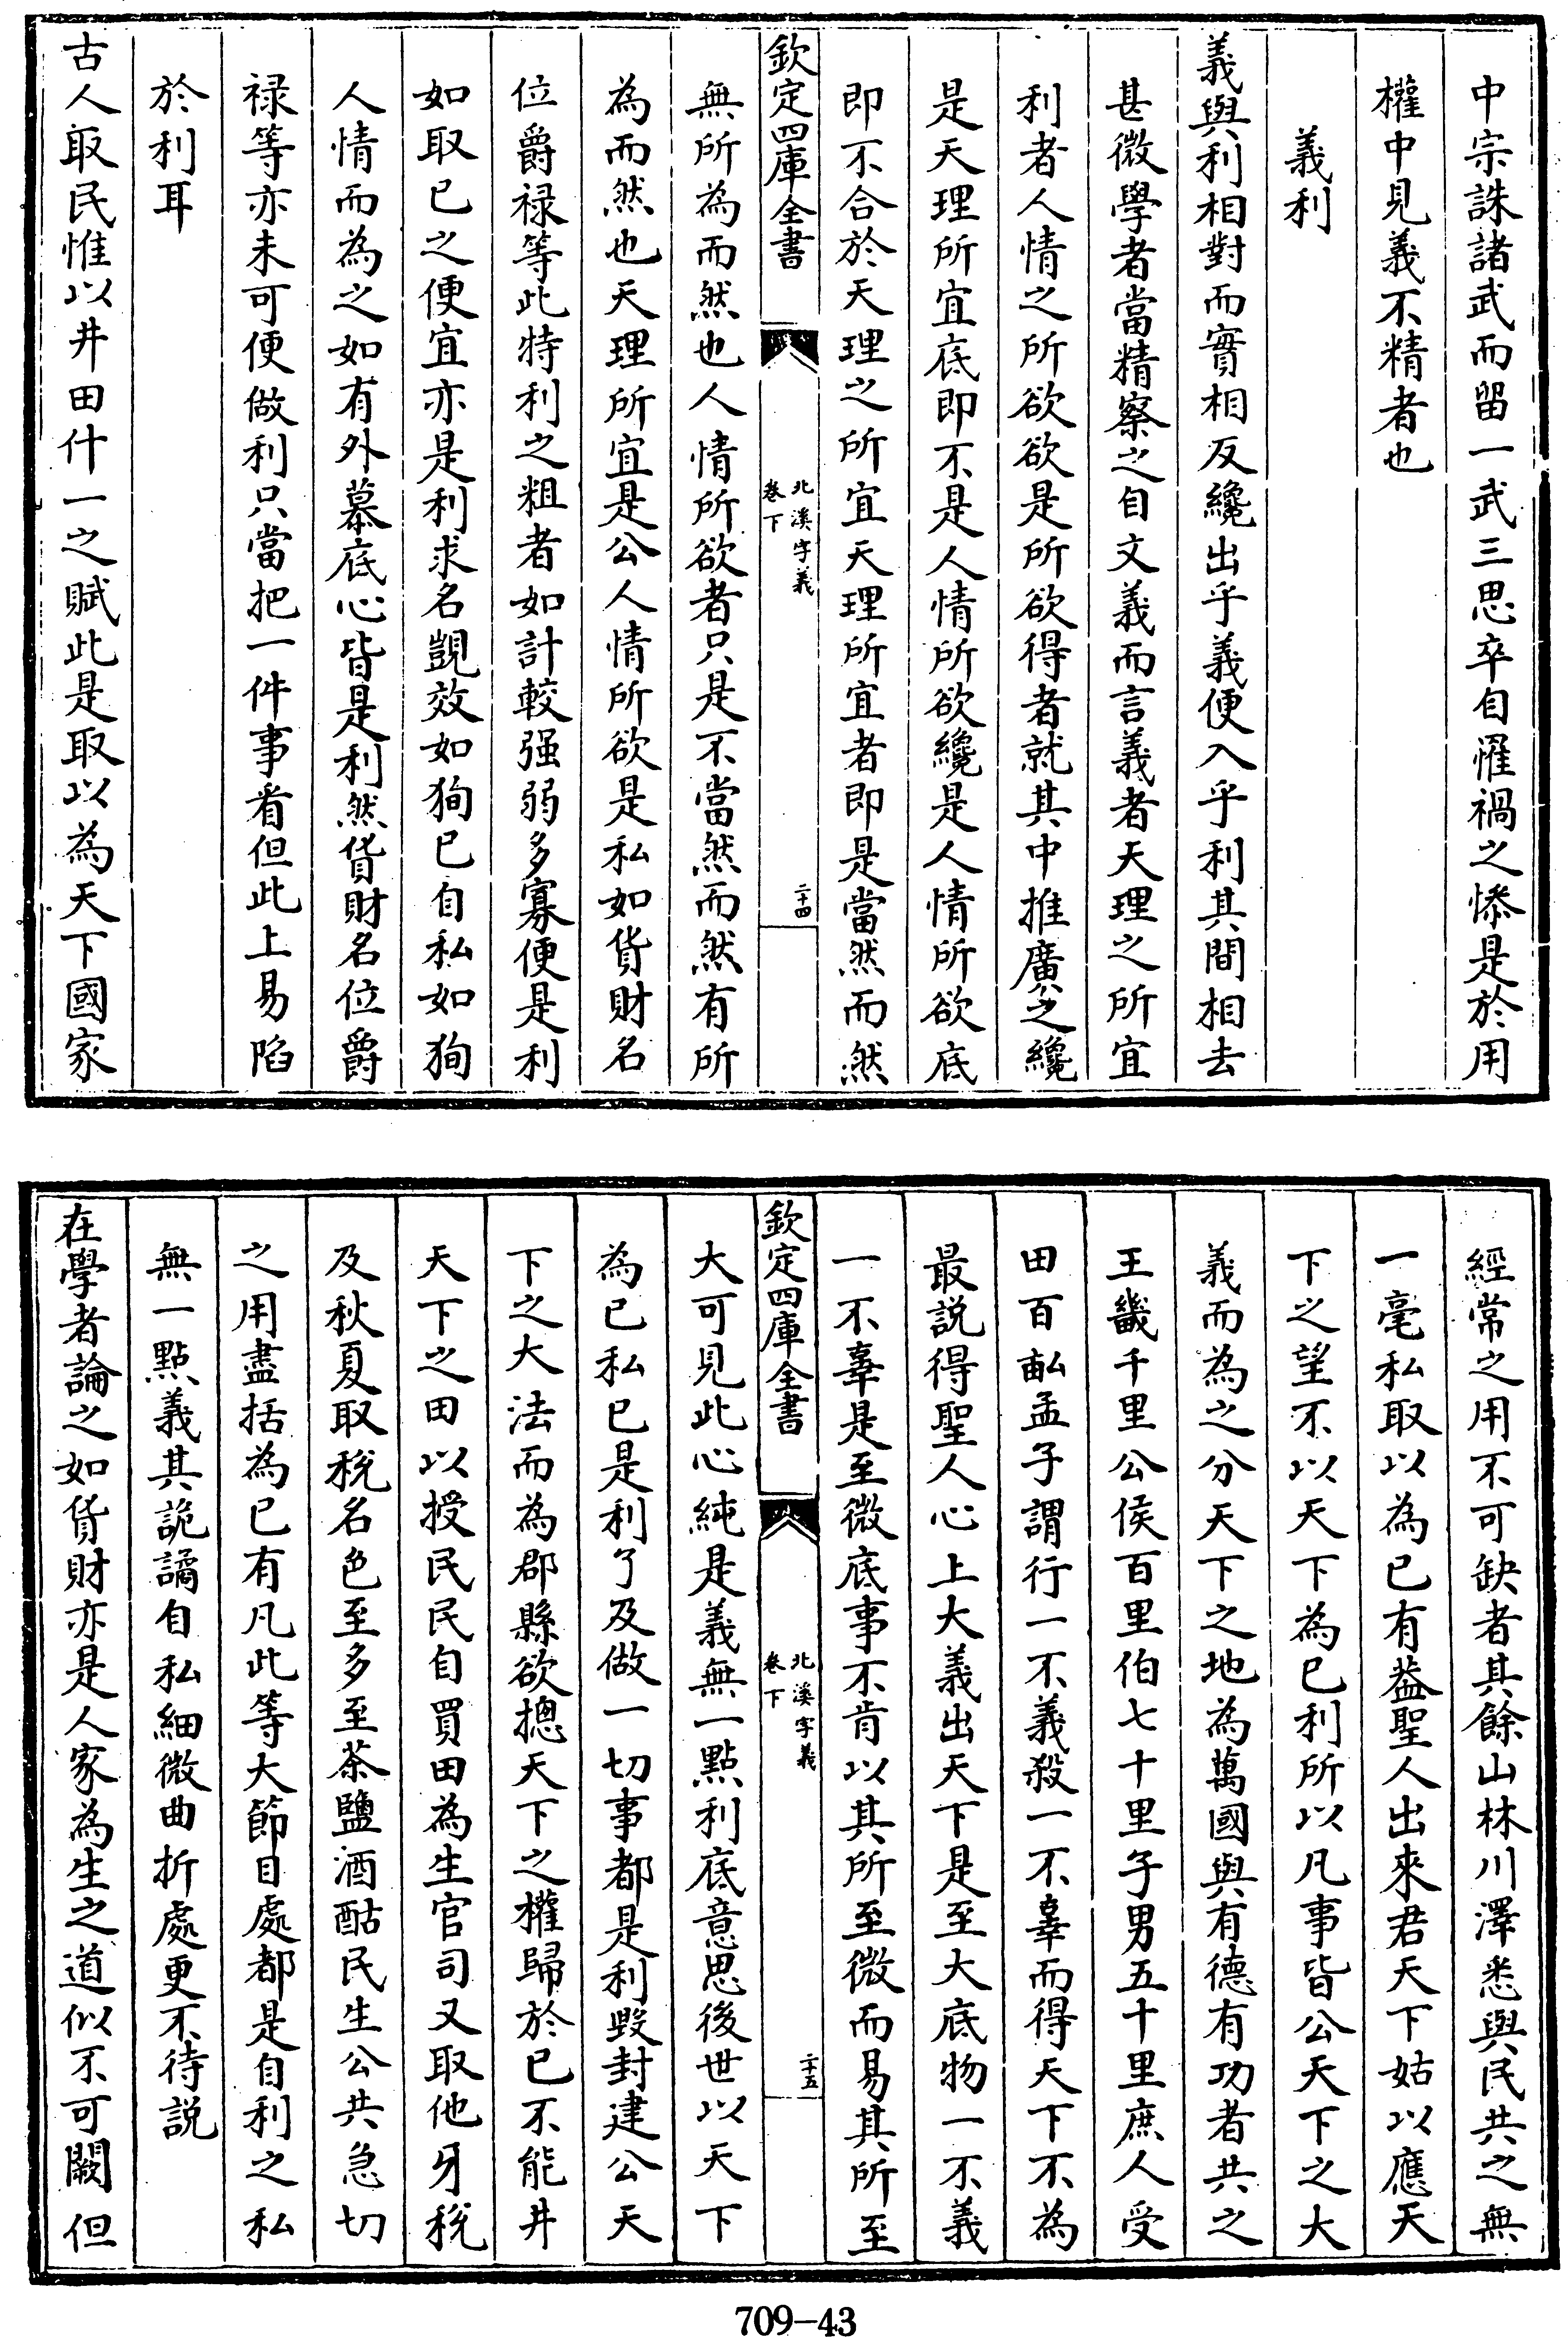 中宗誅諸武而留一武三思卒自罹禍之慘是於用
權中見義不精者也
義利
義與利相對而實相反纔出乎義便入乎利其間相去
甚微學者當精察之自文義而言義者天理之所宜
利者人情之所欲欲是所欲得者就其中推廣之纔
是天理所宜底即不是人情所欲纔是人情所欲底
即不合於天理之所宜天理所宜者即是當然而然
欽定四庫全書
北溪字義
卷下
二十四
無所為而然也人情所欲者只是不當然而然有所
為而然也天理所宜是公人情所欲是私如貨財名
位爵禄等此特利之粗者如計較强弱多寡便是利
如取已之便宜亦是利求名覬效如狥已自私如狥
人情而為之如有外慕底心皆是利然貨財名位爵
禄等亦未可便做利只當把一件事㸔但此上易陷
於利耳
古人取民惟以井田什一之賦此是取以為天下國家
經常之用不可缺者其餘山林川澤悉與民共之無
一毫私取以為已有葢聖人出來君天下姑以應天
下之望不以天下為已利所以凡事皆公天下之大
義而為之分天下之地為萬國與有德有功者共之
王畿千里公侯百里伯七十里子男五十里庶人受
田百畝孟子謂行一不義殺一不辜而得天下不為
最説得聖人心上大義出天下是至大底物一不義
一不辜是至微底事不肯以其所至微而易其所至
欽定四庫全書
北溪字義
卷下
二十五
大可見此心純是義無一點利底意思後世以天下
為已私已是利了及做一切事都是利毀封建公天
下之大法而為郡縣欲摠天下之權歸於已不能井
天下之田以授民民自買田為生官司又取他牙稅
及秋夏取稅名色至多至茶鹽酒酤民生公共急切
之用盡括為已有凡此等大節目處都是自利之私
無一點義其詭譎自私細微曲折處更不待説
在學者論之如貨財亦是人家為生之道似不可闕但
709-43